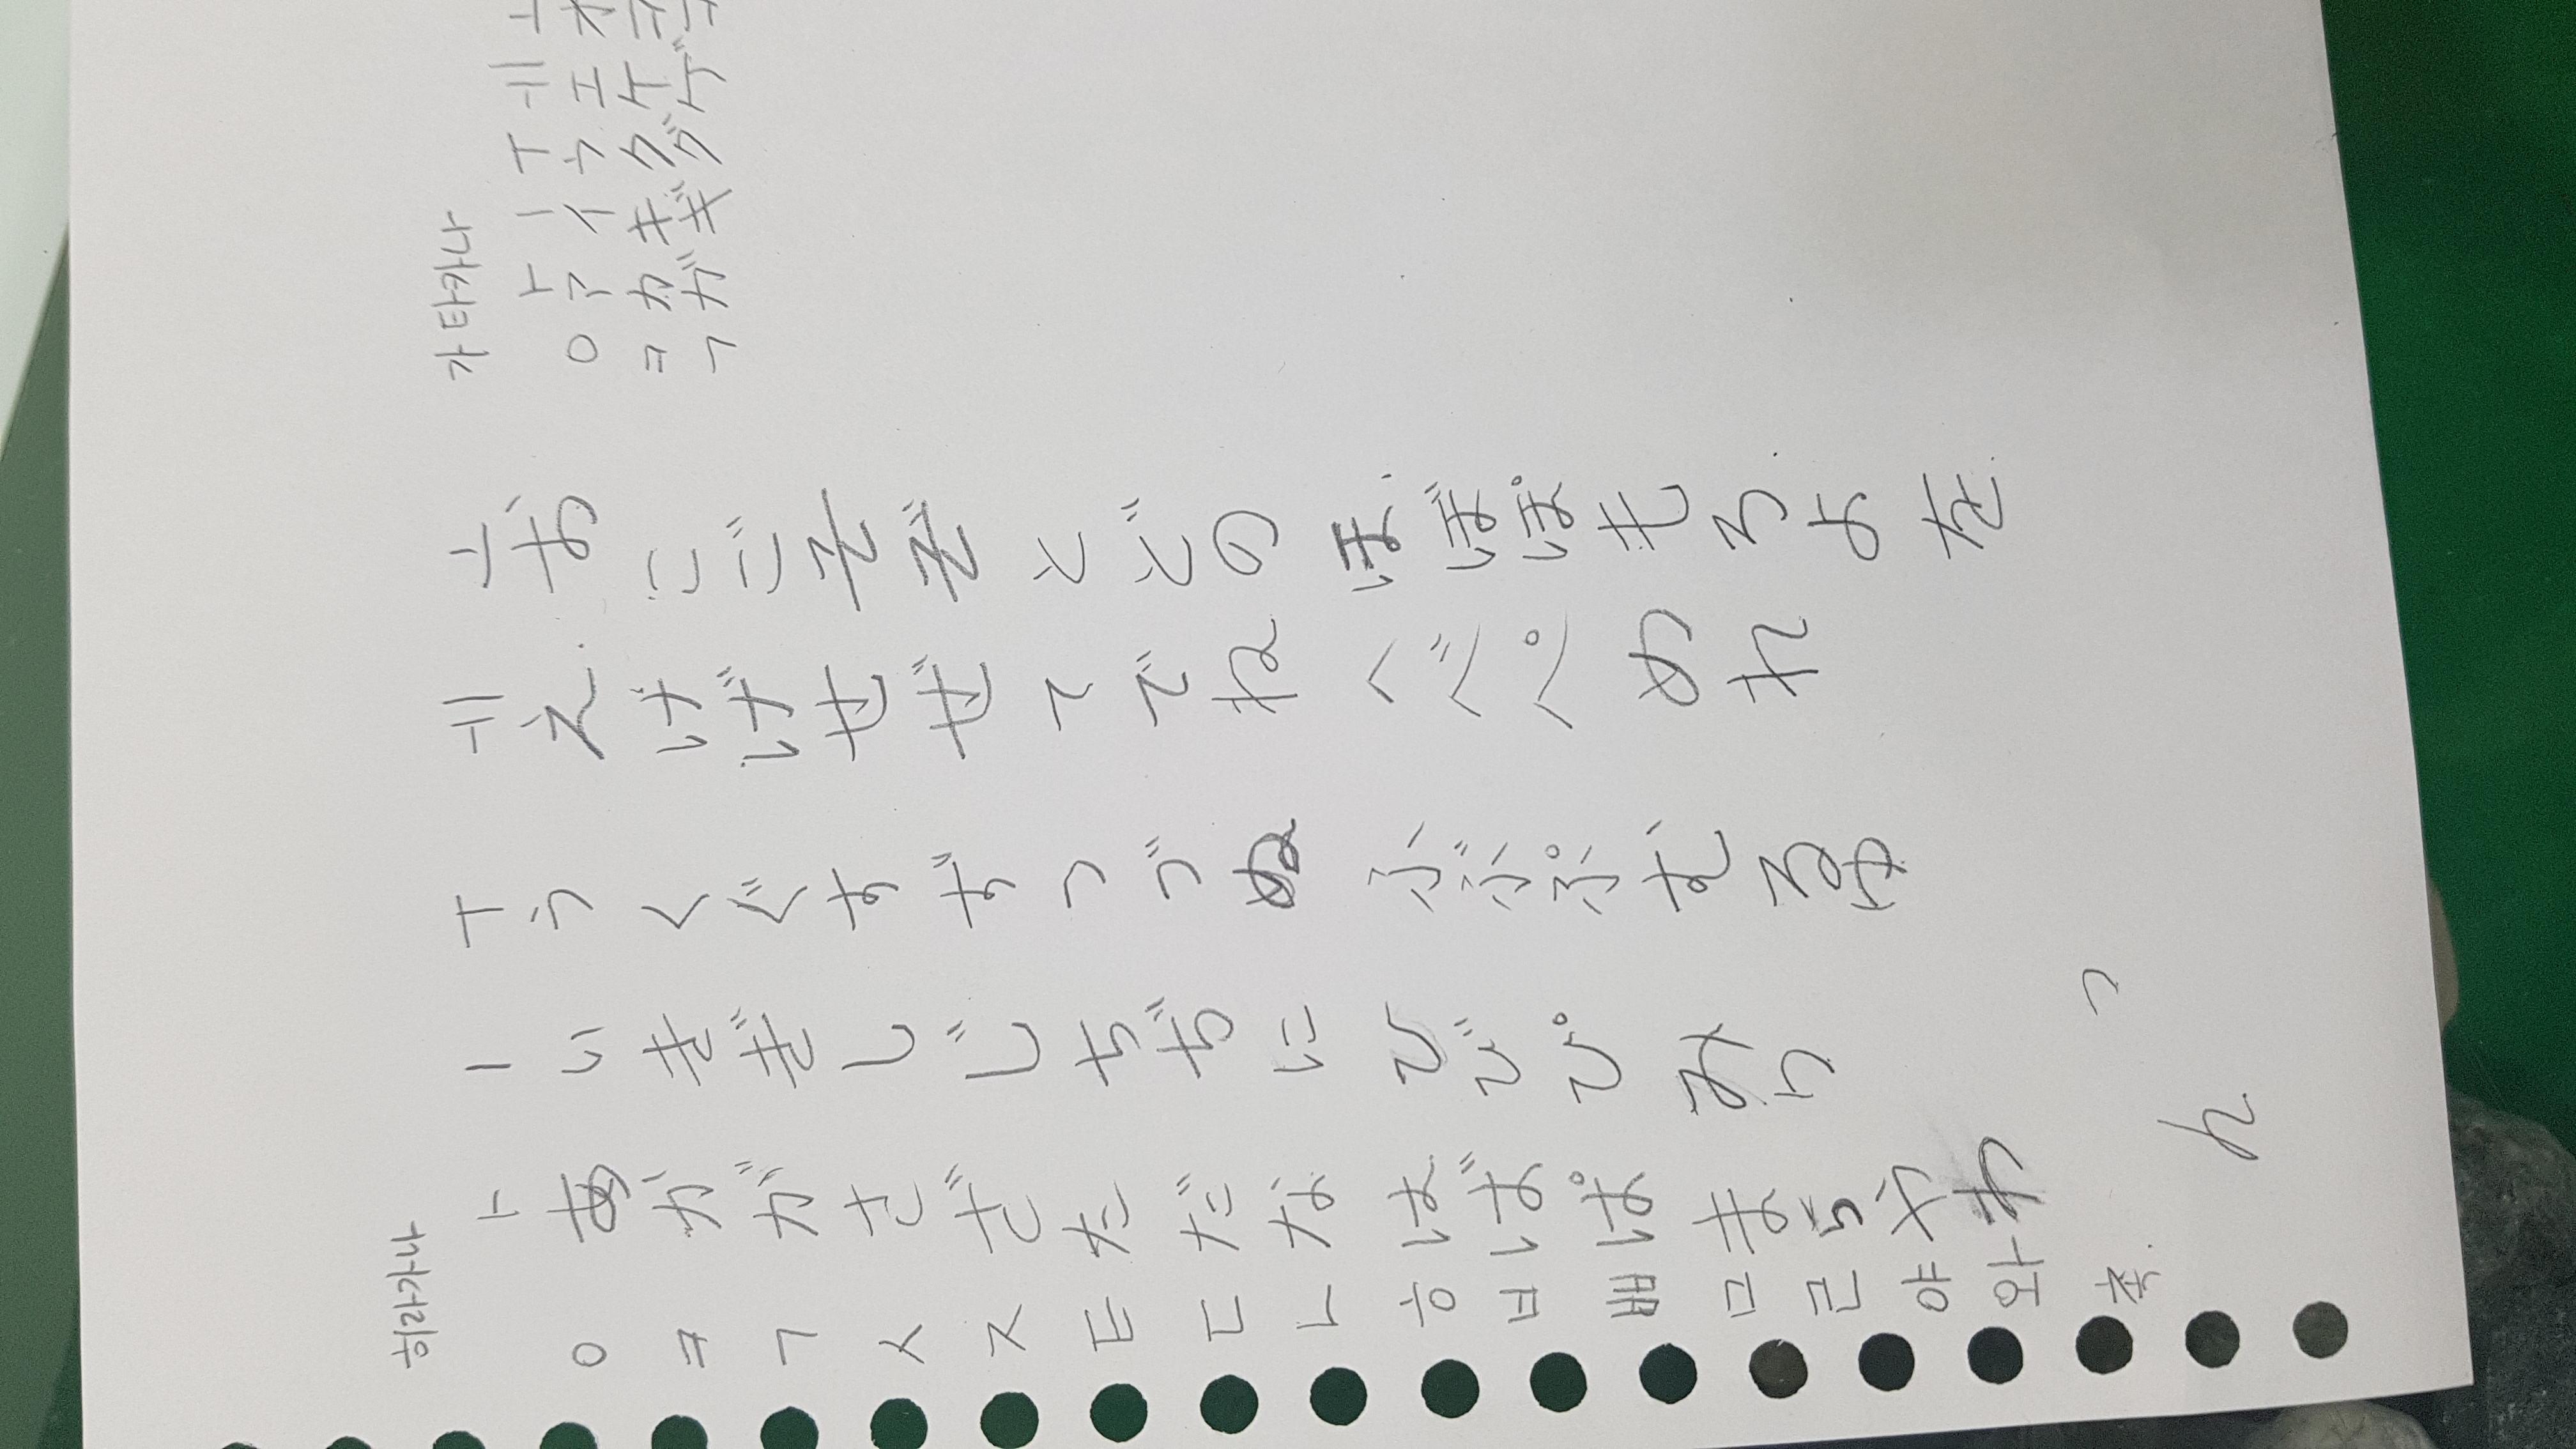 히라가나
ㅏ ㅣ ㅜ ㅔ ㅗ
ㅇ あ い う え お
ㅋ か き く け こ
ㄱ が ぎ ぐ げ ご
ㅅ さ し す せ そ
ㅈ ざ じ ず ぜ ぞ
ㅌ た ち つ て と
ㄷ だ ぢ づ で ど
ㄴ な に ぬ ね の
ㅎ は ひ ふ へ ほ
ㅂ ば び ぶ べ ぼ
ㅃ ぱ ぴ ぷ ぺ ぽ
ㅁ ま み む め も
ㄹ ら り る れ ろ
야 や ゆ よ
와 わ を
촉 っ
ん
가타카나
ㅏ ㅣ ㅜ ㅔ ㅗ
ㅇ ア イ ウ エ オ
ㅋ カ キ ク ケ コ
ㄱ ガ ギ グ ゲ ゴ